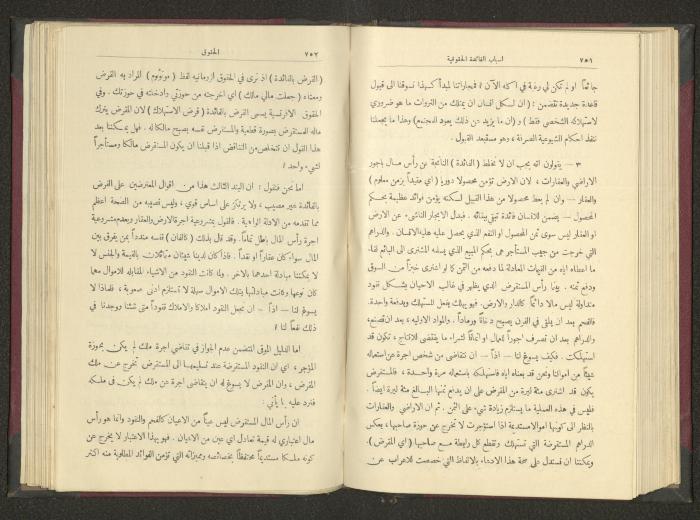 ٧٥٦ اسباب الفائدة الحقوقية
جائعاً او لم تكن لي رغبة في اكله الآن ؟ فمجاراتنا لمبدأ كهذا تسوقنا الى قبول
قاعدة جديدة تقضمن : ( ان لكل انسان ان يمتلك من الثروات ما هو ضروري
لاستهلاكه الشخصي فقط ) و ( ان ما يزيد عن ذلك يعود للمجتمع ) وهذا ما يجعلنا
ننفذ احكام الشيوعية الصرفة ، وهو مستبعد القبول .
٣ — يقولون انه يجب ان لا نخلط ( الفائدة ) الناتجة عن رأس مال باجور
الاراضي والعقارات ، لان الارض تؤمن محصولا دوريا ( اي مقيداً بزمن معلوم )
والعقار — وان لم يعط محصولا من هذا القبيل لكنه يؤمن فوائد عظيمة بحكم
المحصول — يضمن للانسان فائدة تبقى ببقائه . فبدل الايجار الناشيء عن الارض
او العقار ليس سوى ثمن المحصول او النفع الذي يحصل عليه هذا الانسان . والدراهم
التي خرجت من جيب المستأجر هي بحكم المبيع الذي يسلمه المشتري الى البائع لقاء
ما اعطاه اياه من القيمات المعادلة لما دفعه من الثمن كما لو اشترى خبزاً من السوق
ودفع ثمنه . بينما رأس المال المستقرض الذي يظهر في غالب الاحيان بشكل نقود
متداولة ليس مالا دائمياً كالدار والارض ، فهو يهلك بفعل المستهلك وبدفعة واحدة.
فالفحم بعد ان يلقى في الفرن يصبح دخاناً ورماداً . والمواد الاولية ، بعد ان تصنع،
والدراهم بعد ان تصرف اجوراً للعمال او اثماناً لشراء ما يقتضى للانتاج ، تكون قد
استهلكت . فكيف يسوغ لنا — اذاً — ان نتقاضى من شخص اجرة عن استعماله
شيئاً من اموالنا ونحن قد بعناه اياه فاستهلكه باستعماله مرة واحدة ، فالمستقرض
يكون قد اشترى مئة ليرة من المقرض على ان يدفع ثمنها البالغ مئة ليرة ايضاً .
فليس في هذه العملية ما يستلزم زيادة شيء على الثمن . ثم ان الاراضي والعقارات
بالنظر الى كونها اموالا مستديمة اذا استؤجرت لا تخرج عن حوزة صاحبها، بعكس
الدراهم المستقرضة التي تستهلك وتقطع كل رابطة مع صاحبها ( اي المقرض ).
ويمكننا ان نستدل على صحة هذا الادعاء بالالفاظ التي خصصت للاعراب عن
الحقوق ٧٥٧
( القرض بالفائدة ) اذ نرى في الحقوق الرومانية لفظ ( موتوٌوم ) المراد به القرض
ومعناه ( جعلت مالي مالك ) اي اخرجته من حوزتي وادخلته في حوزتك . وفي
الحقوق الافرنسية يسمى القرض بالفائدة ( قرض الاستهلاك ) لان المقرض يترك
ماله للمستقرض بصورة قطعية والمستقرض نفسه يصبح مالكا له . فهل يمكننا بعد
هذا القول ان نتخلص من التناقض اذا قبلنا ان يكون المستقرض مالكا ومستأجراً
لشيء واحد ؟
اما نحن فنقول : ان البند الثالث هذا من اقوال المعترضين على القرض
بالفائدة غير مصيب ، ولا يرتكز على اساس قوي ، وليس نصيبه من الصحة اعظم
مما تقدمه من الادلة الواهية . فالقول بمشروعية اجرة الارض والعقار وبعدم مشروعية
اجرة رأس المال باطل تماماً . وقد قال بذلك ( كالفان ) نفسه مندداً بمن يفرق بين
المال سواء كان عقاراً او نقداً . فاذا كان لدينا شيئان متماثلان بالقيمة والجنس لا
لا يمكننا مبادلة احدهما بالآخر . ولما كانت النقود من الاشياء المقابلة للاموال مهما
كان نوعها وكانت مبادلتها بتلك الاموال سهلة لا تستلزم ادنى صعوبة ، فلماذا لا
يسوغ لنا — اذاً — ان نجعل النقود املاكا والاملاك نقوداً متى شئنا ووجدنا في
ذلك نفعاً لنا ؟
اما الدليل القوي المتضمن عدم الجواز في تقاضي اجرة ملك لم يكن بحوزة
المؤجر ، اي ان النقود المستقرضة عند تسليمها الى المستقرض تخرج عن ملك
المقرض ، وان المقرض لا يسوغ له ان يتقاضى اجرة عن ملك لم يكن في ملكه
فنرد عليه بما يأتي :
ان رأس المال المستقرض ليس عيناً من الاعيان كالفحم والنقود وانما هو رأس
مال اعتباري له قيمة تعادل اي عين من الاعيان . فهو بهذا الاعتبار لا يخرج عن
كونه ملكا مستديماً محتفظاً بخصائصه ومميزاته التي تؤمن الفوائد المطلوبة منه اكثر